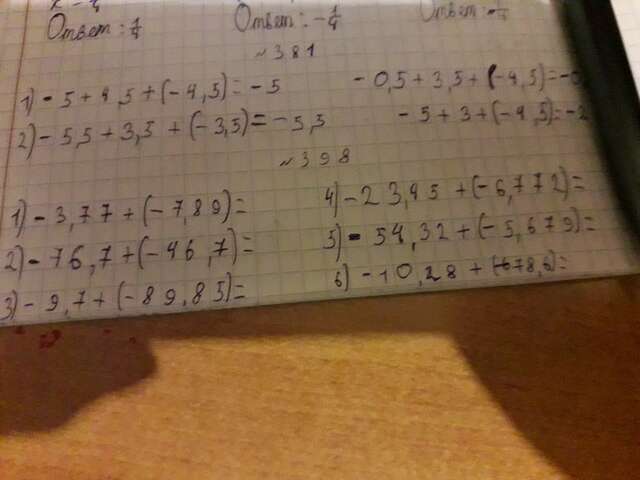 Ответ: 1/4 Ответ: -1/4 Ответ:
№381
1) -5+4,5+(-4,5)=-5 -0,5+3,5+(-4,5)=-0
2) -5,5+3,5+(-3,5)=-5,5 -5+3+(-4,5)=-2
№398
1) -3,77+(-7,89)= 4) -23,45+(-6,772)=
2) -76,7+(-46,7)= 5) -54,32+(-5,679)=
3) -9,7+(-89,85)= 6) -10,28+(-678,6)=